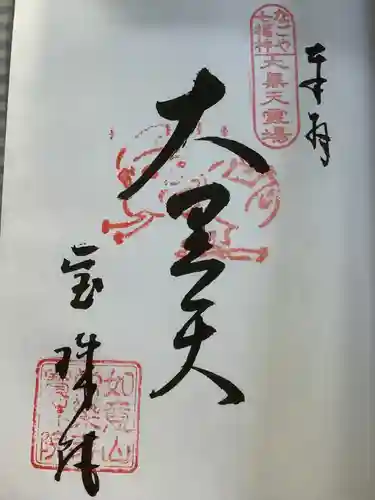 奉拝
なごや
七福神
大黒天霊場
大黒天
宝珠院
如意山
寶珠院